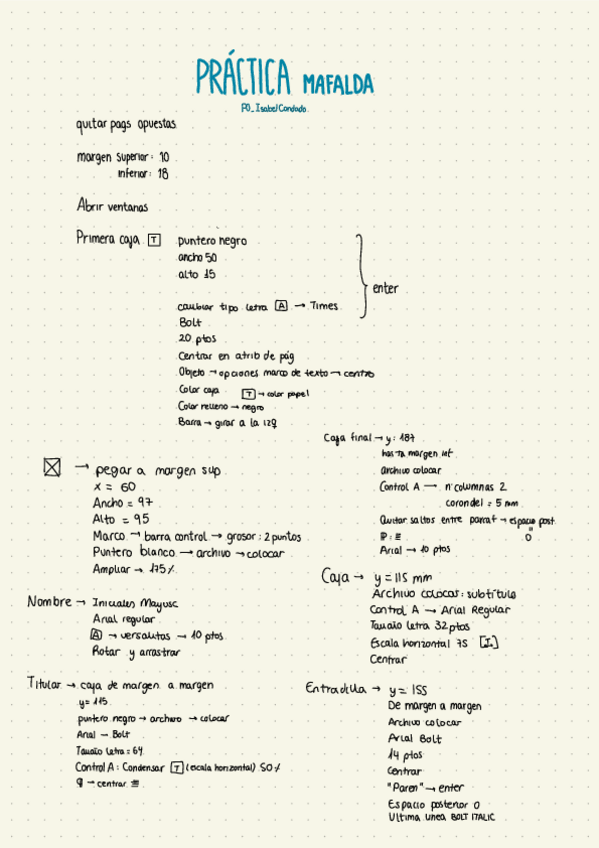 PRÁCTICA MAFALDA
PO_IsabelCondado.
quitar pags opuestas
margen superior: 10
inferior: 18
Abrir ventanas
Primera caja T puntero negro
ancho 50
alto 15
enter
cambiar tipo letra A → Times
Bolt
20 ptos
Centrar en atrib de pág
Objeto → opciones marco de texto → centro
Color caja T → color papel
Color relleno → negro
Barra → girar a la izq
→ pegar a margen sup
x = 60
Ancho = 97
Alto = 95
Marco → barra control → grosor: 2 puntos
Puntero blanco → archivo → colocar
Ampliar → 175%
Nombre → Iniciales Mayusc
Arial regular
A → versalitas → 10 ptos
Rotar y arrastrar
Titular → caja de margen a margen
y = 115
puntero negro → archivo → colocar
Arial → Bolt
Tamaño letra = 64
Control A: Condensar T (escala horizontal) 50%
q → centrar
Caja final → y: 187
hasta margen inf
archivo colocar
Control A → nº columnas 2
corondel = 5 mm
Quitar saltos entre parraf → espacio post.
0
Arial → 10 ptos
Caja → y = 115 mm
Archivo colocar: subtítulo
Control A → Arial Regular
Tamaño letra 32 ptos
Escala horizontal 75
Centrar
Entradilla → y = 155
De margen a margen
Archivo colocar
Arial Bolt
14 ptos
Centrar
"Paren" → enter
Espacio posterior 0
Ultima linea BOLT ITALIC